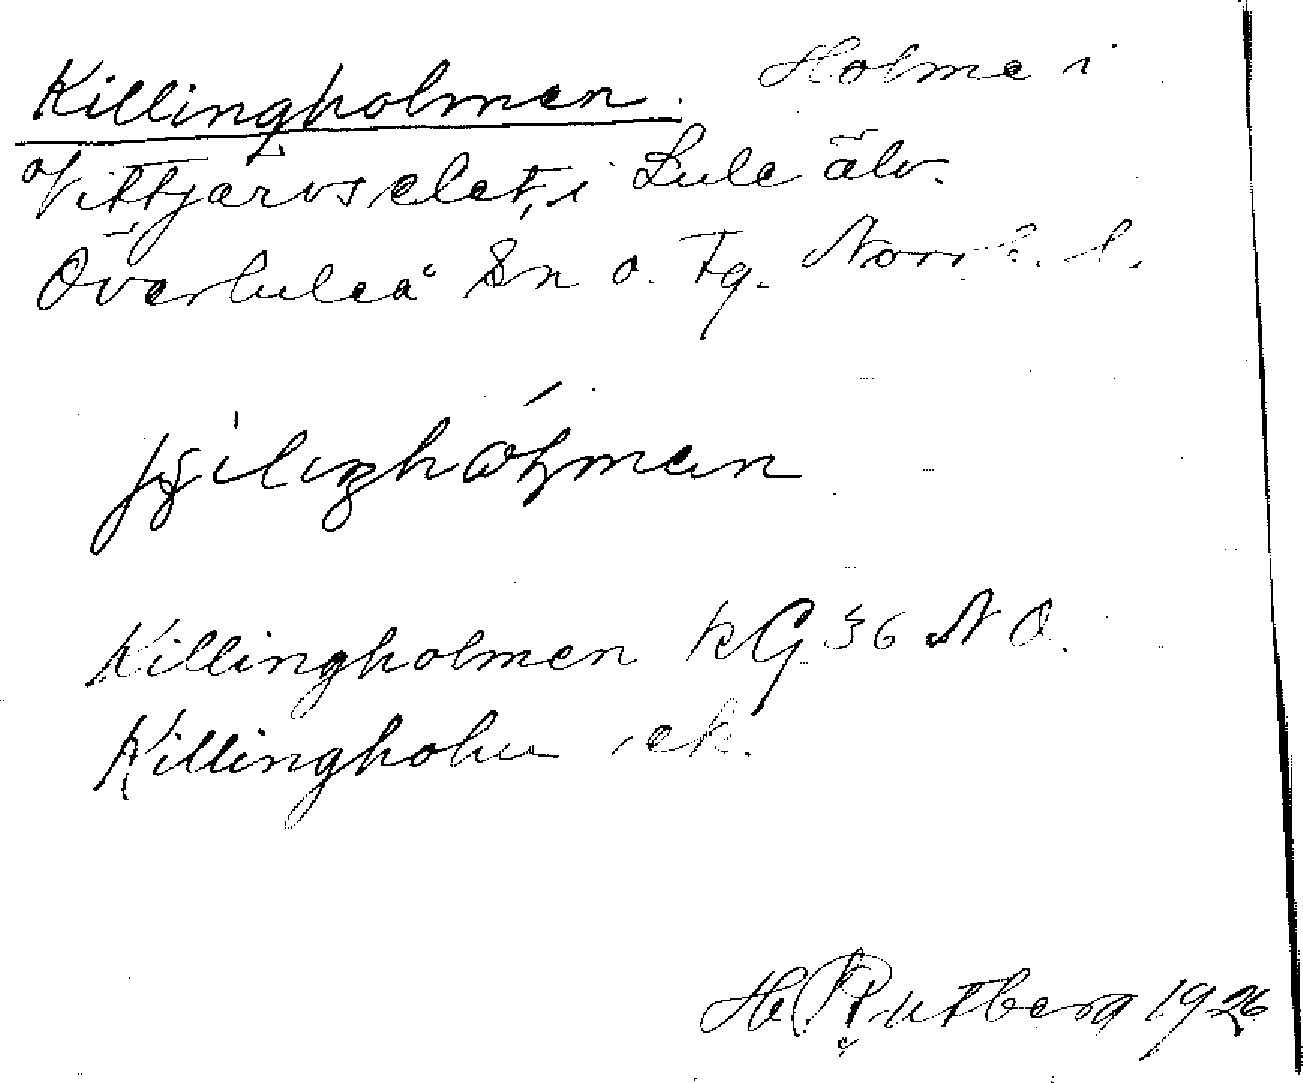 Killingholmen. Holme i
Vittjärvselet, i Lule älv.
Överluleå Sn o. Tg. Norrb. l.
Killingholmen KG 36 NO.
Killingholm ek.
H. Rutberg 1926